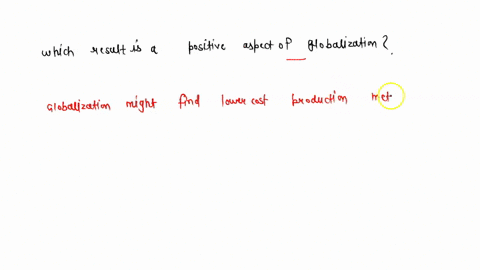 which result is a positive aspect of globalization?.
Globalization might find lower cost production met